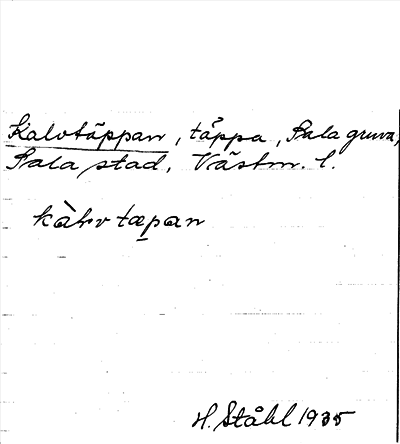 Kalvtäppan, täppa, Sala gruva,
Sala stad, Västm. l.
kàlvtæpan
H. Ståhl 1935